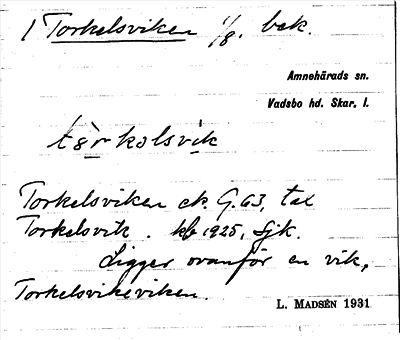 1 Torkelsviken 1/8. bek.
Amnehärads sn.
Vadsbo hd. Skar. l.
tòrkəlsvik
Torkelsviken ek. G. 63, tax
Torkelsvik. kb 1925, Sjk.
Ligger ovanför en vik,
Torkelsvikeviken.
L. MADSÉN 1931